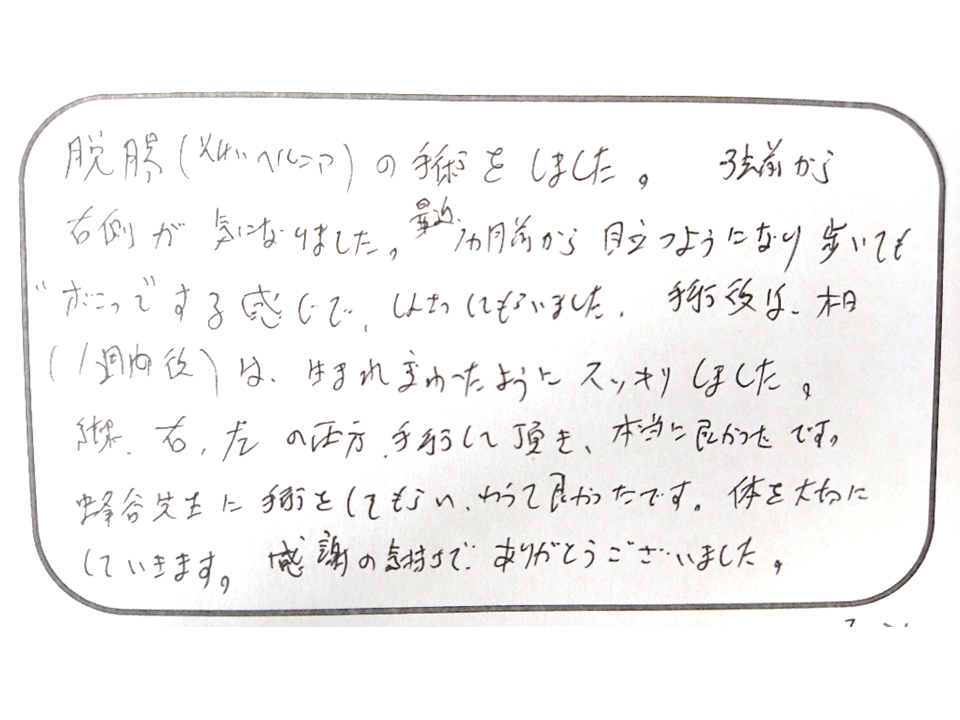 脱腸(そけいヘルニア)の手術をしました。 3年前から
右側が気になりました。最近1ヵ月前から目立つようになり歩いても
"ボコッ"でする感じで、してもらいました。手術後は、本日
(1週間後)は、生まれ変わったようにスッキリしました。
結果、右、左の両方、手術して頂き、本当に良かったです。
蜂谷先生に手術をしてもらい、良かったです。体を大切に
していきます。感謝の気持ちで、ありがとうございました。